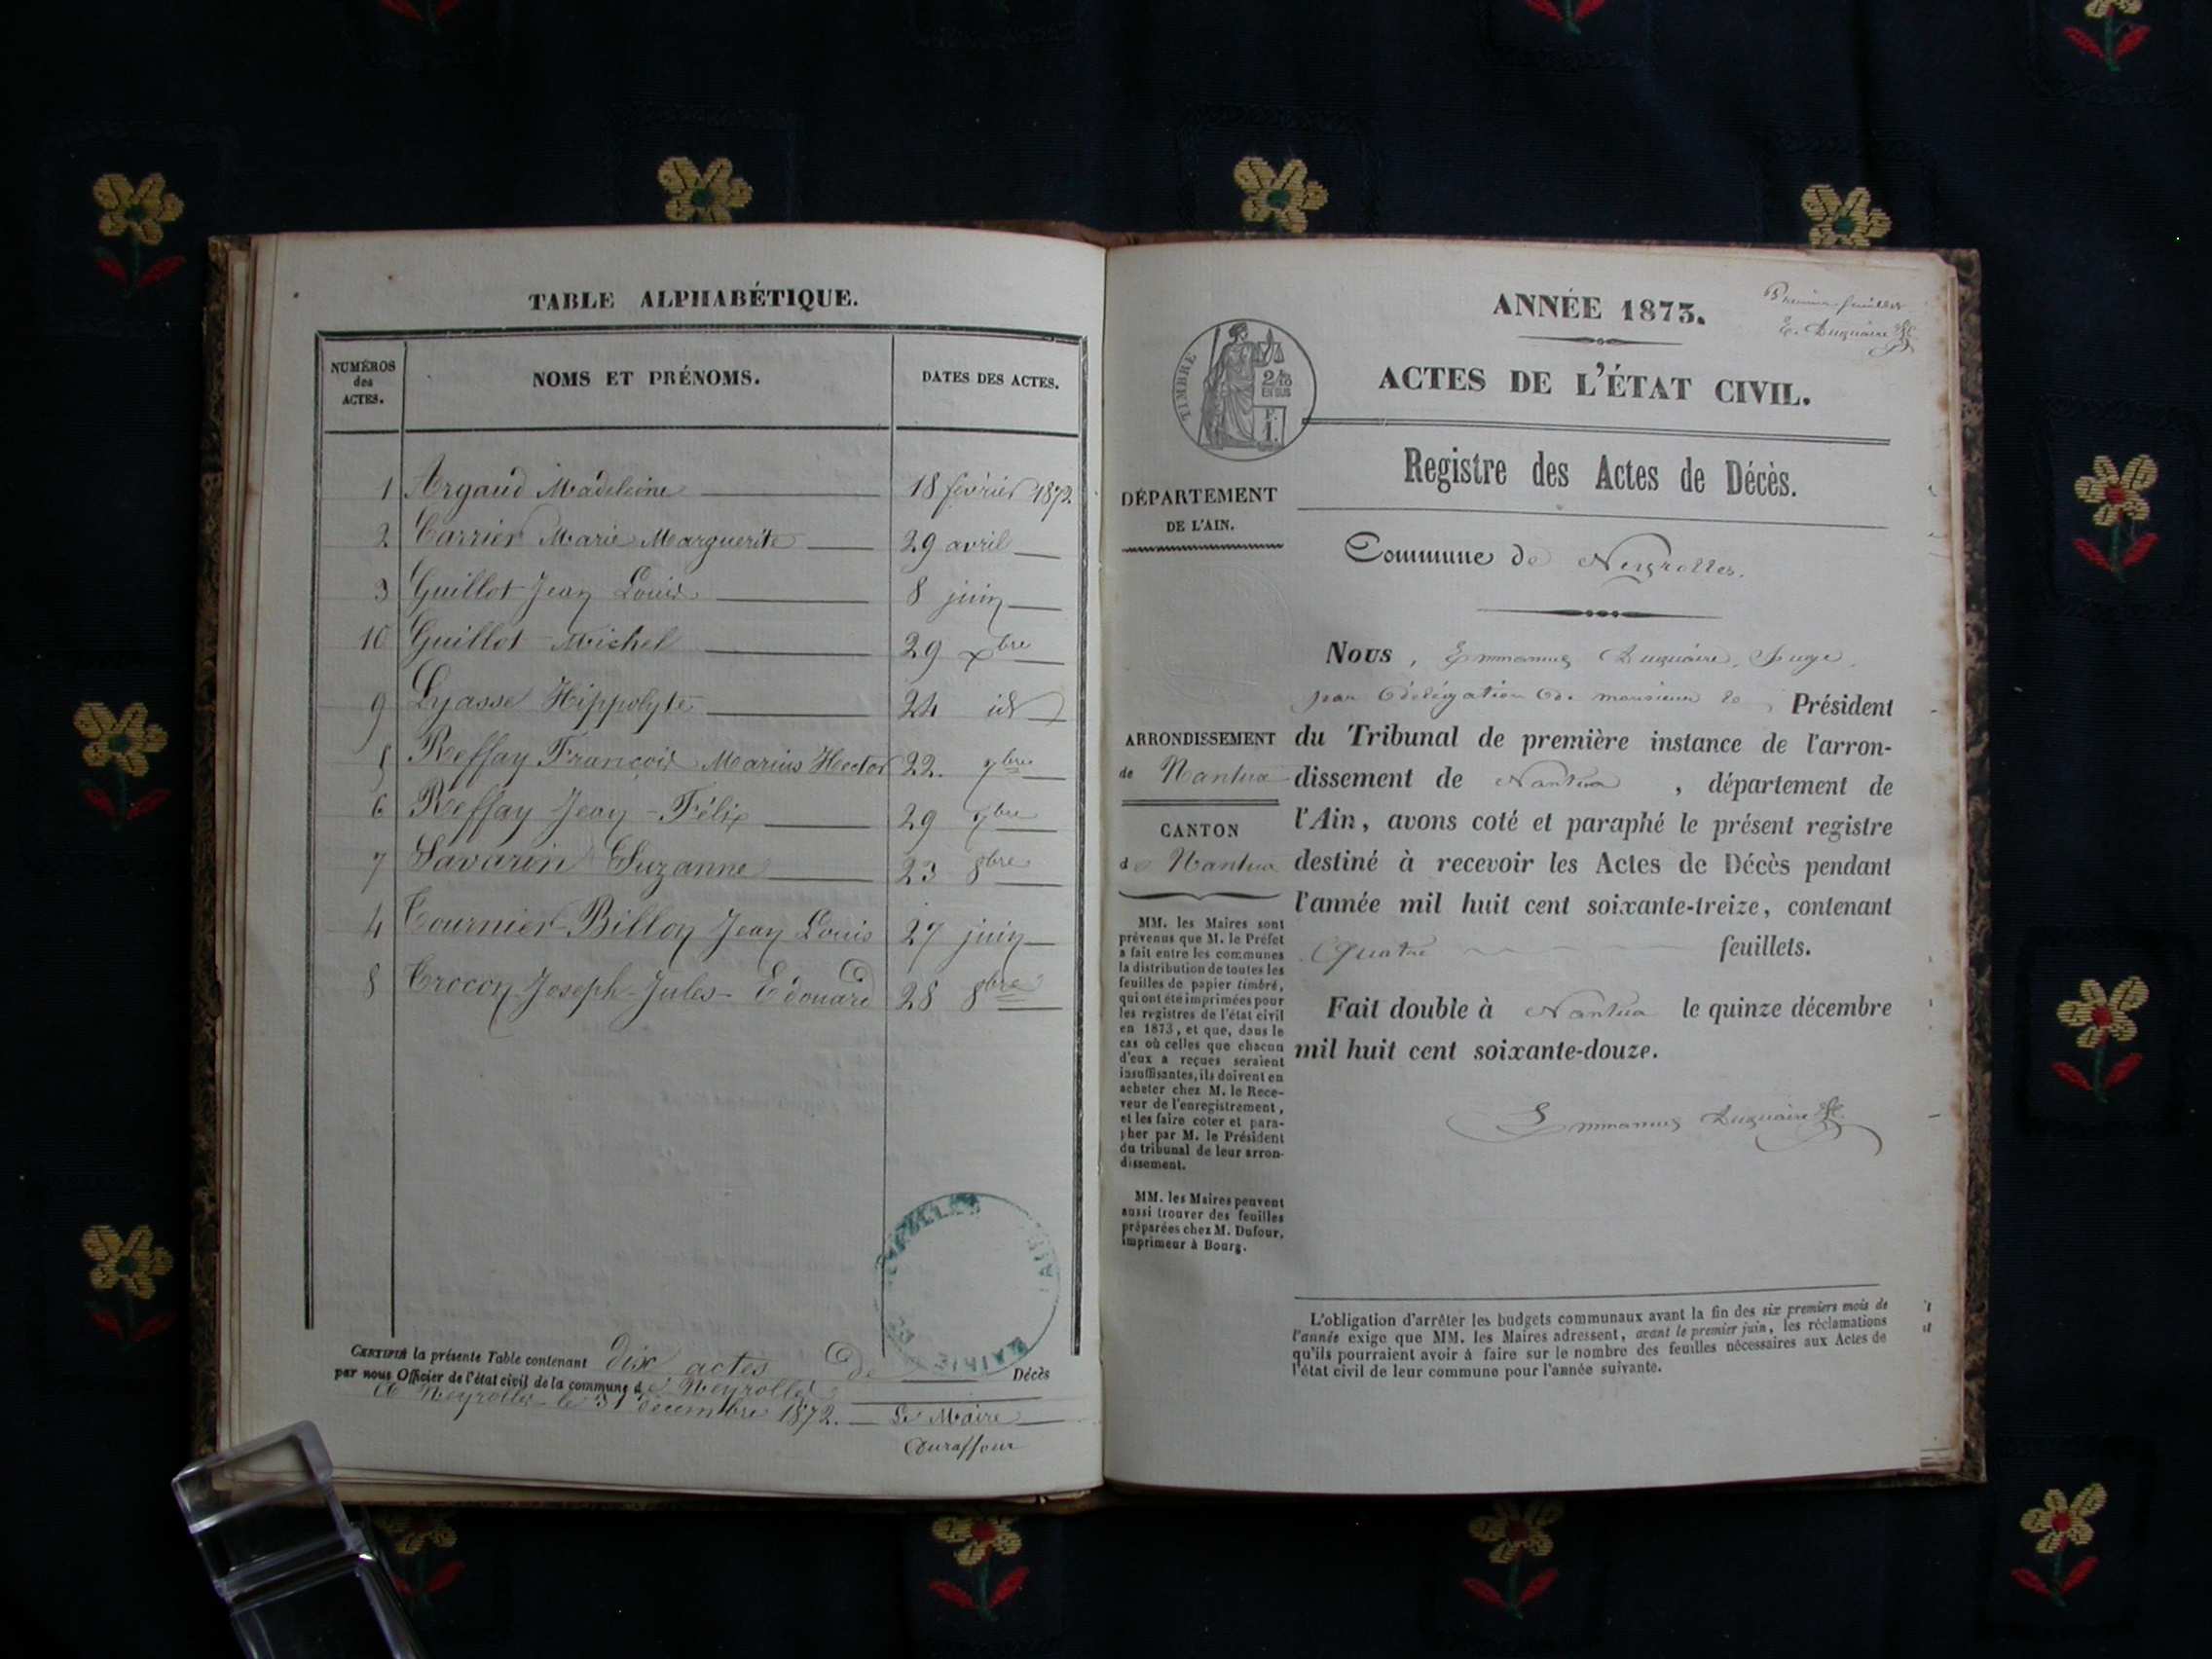 TABLE ALPHABÉTIQUE.
NUMÉROS
des
ACTES.
NOMS ET PRÉNOMS.
DATES DES ACTES.
1 Argaud Madeleine 18 février 1872
2 Carrier Marie Marguerite 29 avril
3 Guillot Jean Louis 8 juin
10 Guillot Michel 29 xbre
9 Lyasse Hippolyte 24 id
5 Reffay François Marius Hector 22. 7bre
6 Reffay Jean-Félix 29 7bre
7 Savarin Suzanne 23 8bre
4 Tournier-Billon Jean Louis 27 juin
8 Crocon Joseph-Jules-Edouard 28 8bre
MAIRIE
CERTIFIÉ la présente Table contenant dix actes de Décès
par nous Officier de l'état civil de la commune de Neyrolles
A Neyrolles le 31 décembre 1872. Le Maire
ANNÉE 1873.
Premier feuillet
E. Duquaire
TIMBRE
2/10
EN SUS
F.
1.
ACTES DE L'ÉTAT CIVIL.
Registre des Actes de Décès.
DÉPARTEMENT
DE L'AIN.
Commune de Neyrolles.
Nous, Emmanuel Duquaire, Juge,
par délégation de monsieur le, Président
du Tribunal de première instance de l'arron-
dissement de Nantua, département de
l'Ain, avons coté et paraphé le présent registre
destiné à recevoir les Actes de Décès pendant
l'année mil huit cent soixante-treize, contenant
Quatre feuillets.
Fait double à Nantua le quinze décembre
mil huit cent soixante-douze.
Emmanuel Duquaire
ARRONDISSEMENT
de Nantua
CANTON
de Nantua
MM. les Maires sont
prévenus que M. le Préfet
a fait entre les communes
la distribution de toutes les
feuilles de papier timbré,
qui ont été imprimées pour
les registres de l'état civil
en 1873, et que, dans le
cas où celles que chacun
d'eux a reçues seraient
insuffisantes, ils doivent en
acheter chez M. le Rece-
veur de l'enregistrement,
et les faire coter et para-
pher par M. le Président
du tribunal de leur arron-
dissement.
MM. les Maires peuvent
aussi trouver des feuilles
préparées chez M. Dufour,
imprimeur à Bourg.
L'obligation d'arrêter les budgets communaux avant la fin des six premiers mois de
l'année exige que MM. les Maires adressent, avant le premier juin, les réclamations
qu'ils pourraient avoir à faire sur le nombre des feuilles nécessaires aux Actes de
l'état civil de leur commune pour l'année suivante.